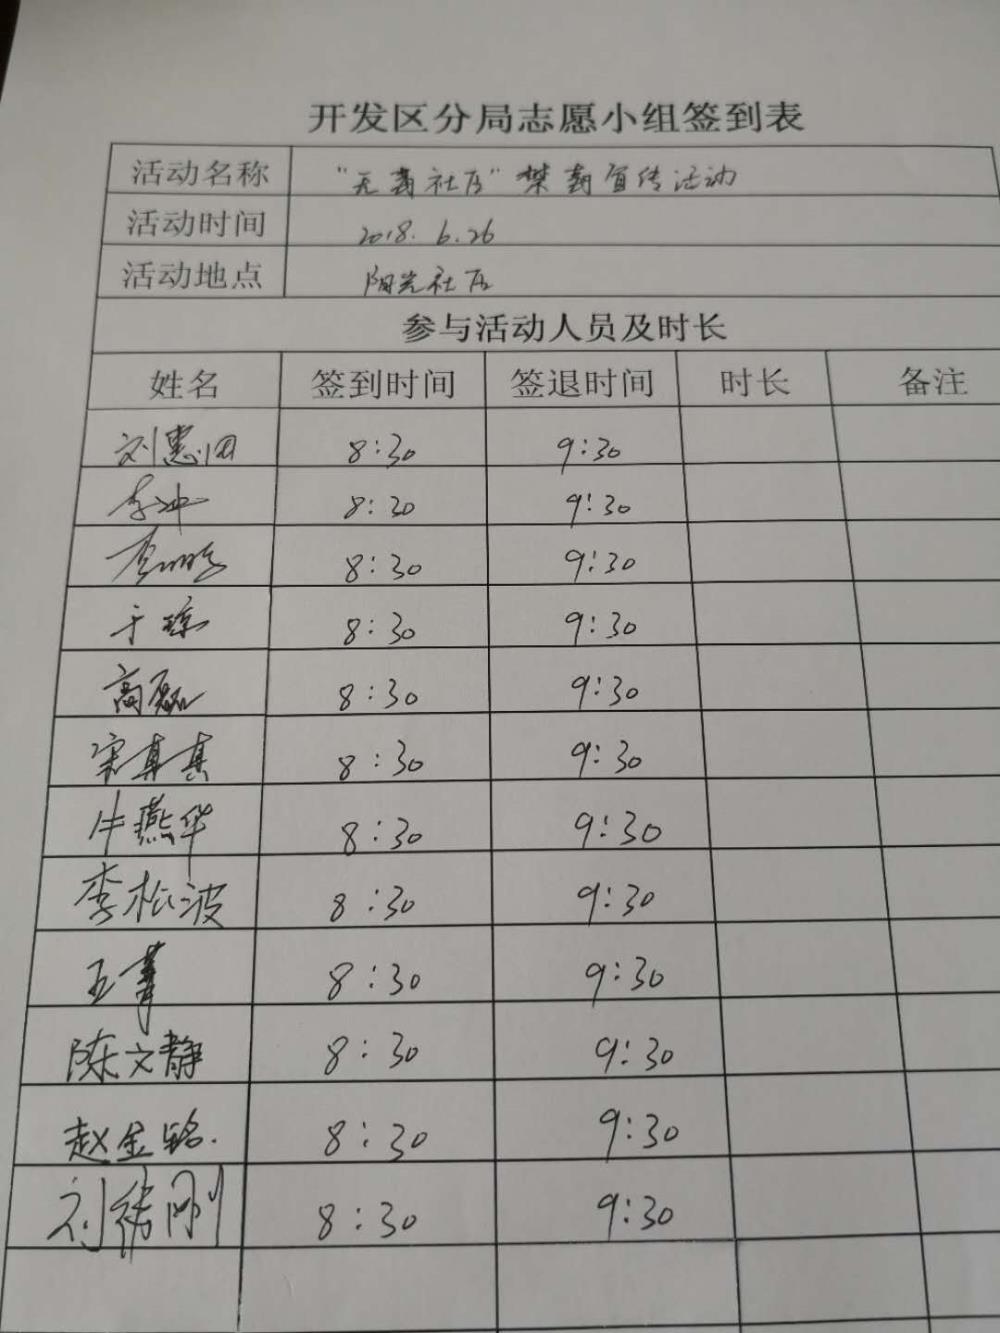 开发区分局志愿小组签到表
活动名称 "无毒社区"禁毒宣传活动
活动时间 2018.6.26
活动地点 阳光社区
参与活动人员及时长
姓名 签到时间 签退时间 时长 备注
刘惠田 8:30 9:30
李冲 8:30 9:30
8:30 9:30
于琼 8:30 9:30
高磊 8:30 9:30
宋真真 8:30 9:30
牛燕华 8:30 9:30
李松波 8:30 9:30
王菁 8:30 9:30
陈文静 8:30 9:30
赵金铭. 8:30 9:30
刘德刚 8:30 9:30